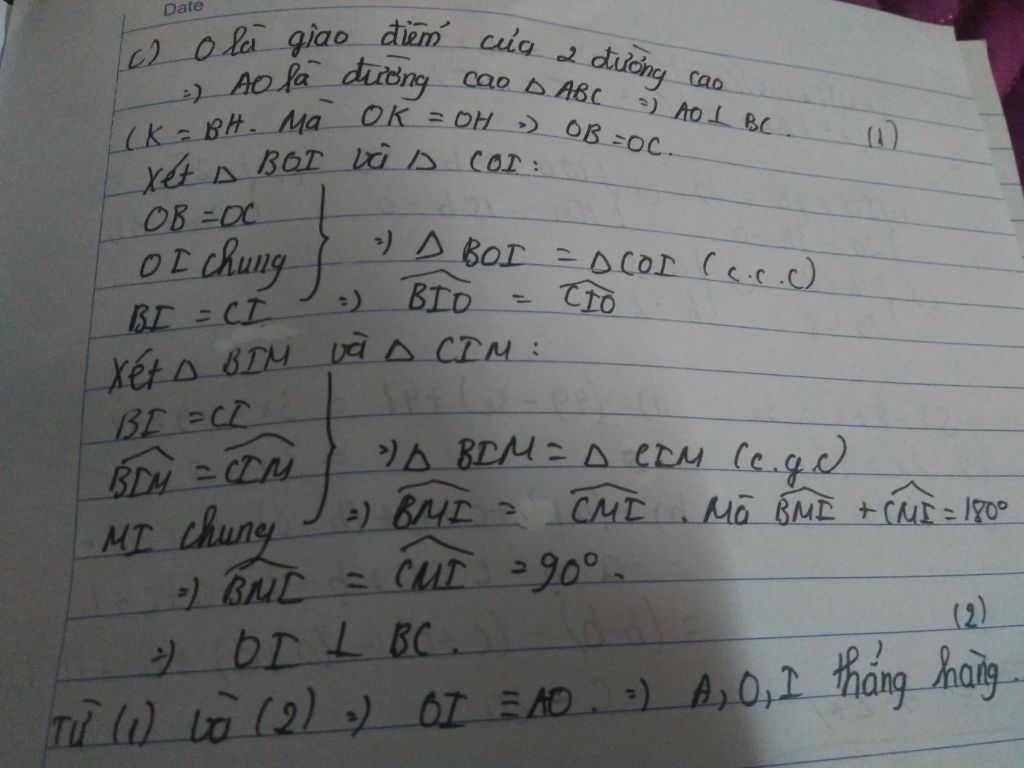 Date
c) O là giao điểm của 2 đường cao
=) AO là đường cao △ ABC =) AO ⊥ BC. (1)
CK = BH. Mà OK = OH =) OB = OC.
Xét △ BOI và △ COI:
OB = OC
OI chung } =) △ BOI = △ COI (c.c.c)
BI = CI =) \widehat{BIO} = \widehat{CIO}
Xét △ BIM và △ CIM:
BI = CI
\widehat{BIM} = \widehat{CIM} } =) △ BIM = △ CIM (c.g.c)
MI chung =) \widehat{BMI} = \widehat{CMI}. Mà \widehat{BMI} + \widehat{CMI} = 180°
=) \widehat{BMI} = \widehat{CMI} = 90°.
=) OI ⊥ BC. (2)
Từ (1) và (2) =) OI ≡ AO. =) A, O, I thẳng hàng.